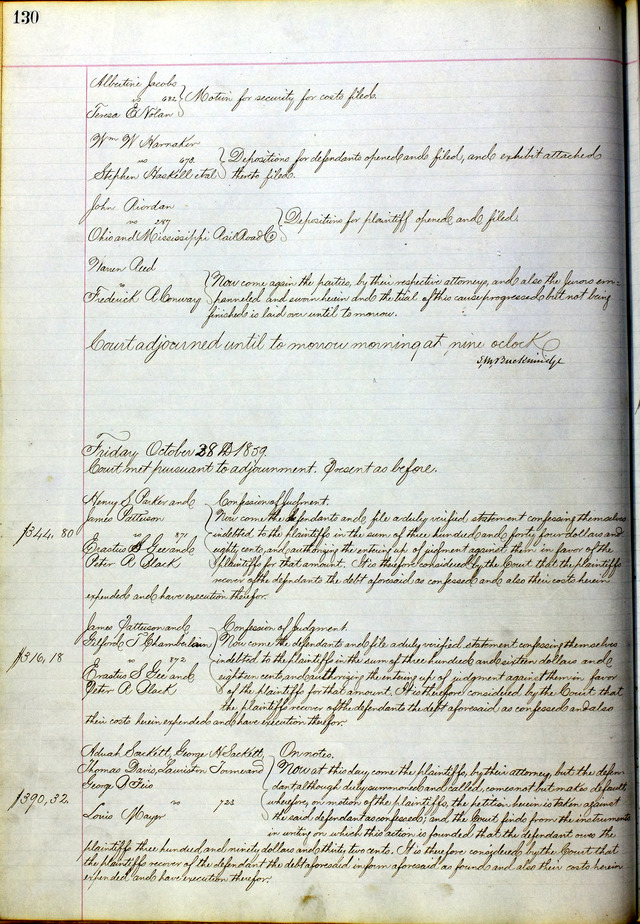 130
Albertine Jacobs
vs 682 } Motion for security for costs filed.
Teresa E Nolan
Wm W Harnaker
vs 678 } Depositions for defendants opened and filed, and exhibit attached
Stephen Haskell et al thereto filed.
John Riordan
vs 287 } Depositions for plaintiff opened and filed.
Ohio and Mississippi Rail Road Co
Warren Reed
vs } Now come again the parties, by their respective attorneys, and also the Jurors em-
Frederick A Conway panneled and sworn herein and the trial of this cause progressed but not being
finished is laid over until to morrow.
Court adjourned until to morrow morning at nine oclock
S, M, Breckinridge
Friday October 28 AD 1859.
Court met pursuant to adjournment. Present as before.
Henry S, Parker and Confession of Judgment.
James Pattison Now come the defendants and file a duly verified statement confessing themselves
$344,80 vs 871 indebted to the plaintiffs in the sum of three hundred and forty four dollars and
Erastus S Gee and eighty cents, and authorizing the entering up of judgment against them in favor of the
Peter A Black plaintiffs for that amount. It is therefore considered by the Court that the plaintiffs
recover of the defendants the debt aforesaid as confessed and also their costs herein
expended and have execution therefor.
James Patterson and Confession of Judgment.
Gilford T Chamberlain Now come the defendants and file a duly verified statement confessing themselves
$316,18 vs 872 indebted to the plaintiffs in the sum of three hundred and sixteen dollars and
Erastus S Gee and eighteen cents, and authorizing the entering up of judgment against them in favor
Peter A Black of the plaintiffs for that amount. It is therefore considered by the Court that
the plaintiffs recover of the defendants the debt aforesaid as confessed and also
their costs herein expended and have execution therefor.
Adnah Sackett, George H Sackett, On notes.
Thomas Davis, Lauriston Towne and Now at this day come the plaintiffs, by their attorney, but the defen-
George P dant although duly summoned and called, comes not but makes default,
$390,32. vs 723 wherefore, on motion of the plaintiffs, the petition herein is taken against
Louis Mayer the said defendant as confessed; and the Court finds from the instruments
in writing on which this action is founded that the defendant owes the
plaintiffs three hundred and ninety dollars and thirty two cents. It is therefore considered by the Court that
the plaintiffs recover of the defendant the debt aforesaid in form aforesaid as found and also their costs herein
expended and have execution therefor.